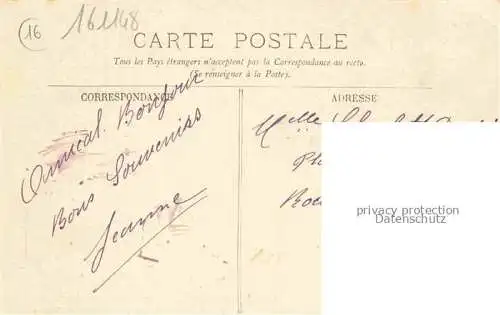 16
161148
CARTE POSTALE
Tous les Pays étrangers n'acceptent pas la Correspondance au recto.
(Se renseigner à la Poste).
CORRESPONDANCE
Amical Bonjour
Bons Souvenirs
Jeanne
ADRESSE
Melle
privacy protection
Datenschutz